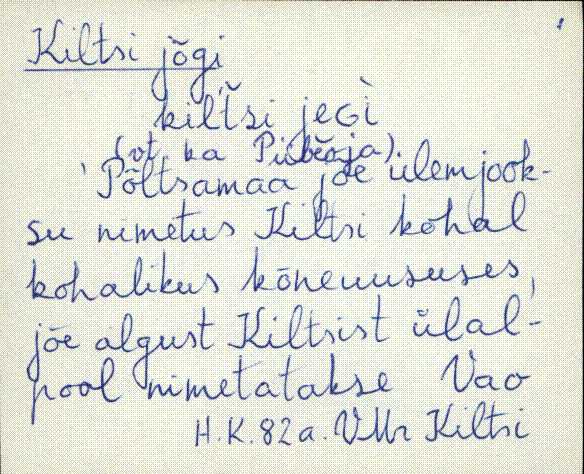 Kiltsi jõgi,
kilťsi jeGì
(vt. ka Piibeoja).
'Põltsamaa jõe ülemjook-
su nimetus Kiltsi kohal
kohalikus kõneuususes,
jõe algust Kiltsist ülal-
pool nimetatakse Vao
H.K.82a. VMr Kiltsi